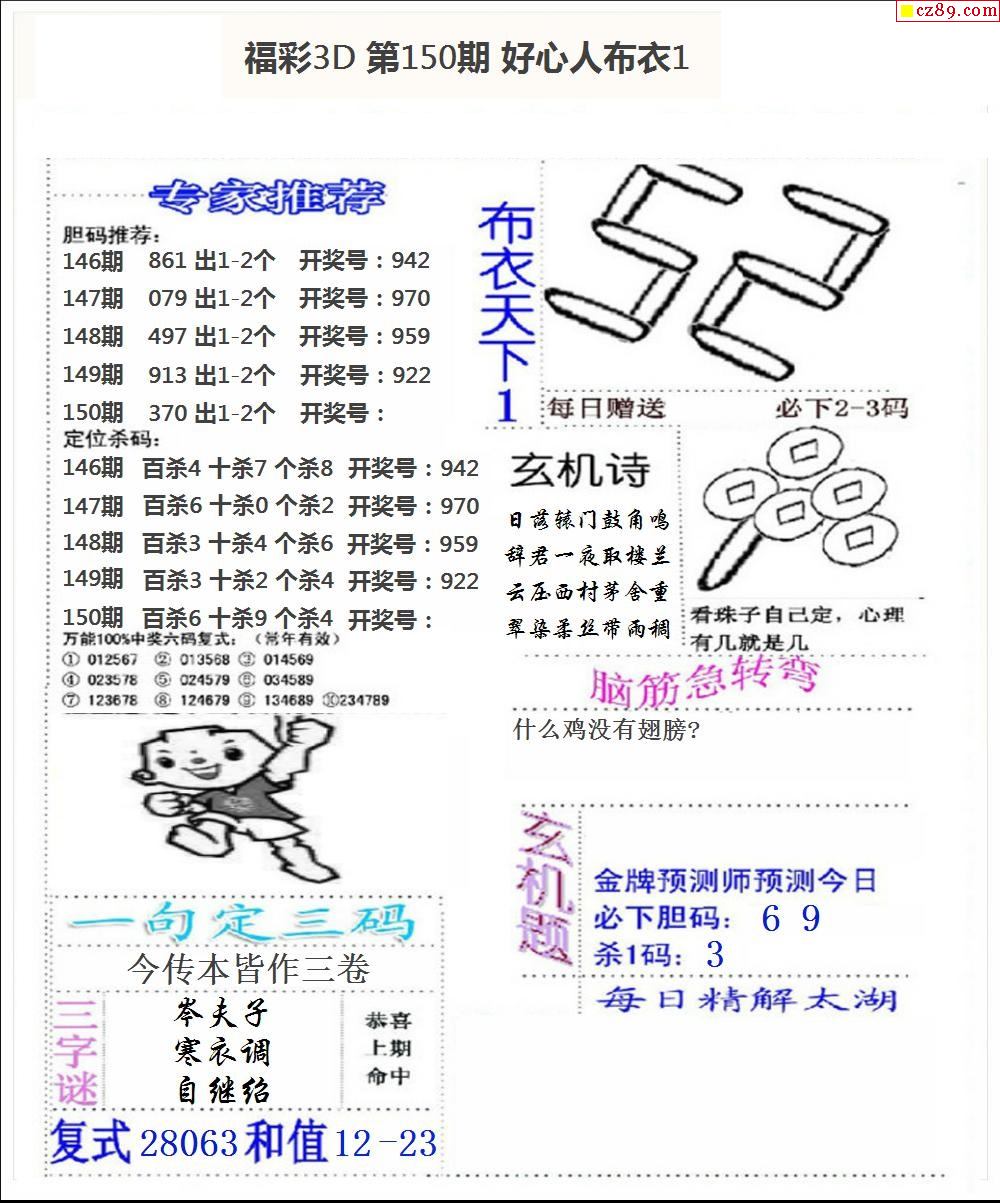 cz89.com
福彩3D 第150期 好心人布衣1
专家推荐
胆码推荐：
146期 861 出1-2个 开奖号：942
147期 079 出1-2个 开奖号：970
148期 497 出1-2个 开奖号：959
149期 913 出1-2个 开奖号：922
150期 370 出1-2个 开奖号：
定位杀码：
146期 百杀4 十杀7 个杀8 开奖号：942
147期 百杀6 十杀0 个杀2 开奖号：970
148期 百杀3 十杀4 个杀6 开奖号：959
149期 百杀3 十杀2 个杀4 开奖号：922
150期 百杀6 十杀9 个杀4 开奖号：
万能100%中奖六码复式：（常年有效）
① 012567 ② 013568 ③ 014569
④ 023578 ⑤ 024579 ⑥ 034589
⑦ 123678 ⑧ 124679 ⑨ 134689 ⑩234789
一句定三码
今传本皆作三卷
三字谜
岑夫子
寒衣调
自继绍
恭喜
上期
命中
复式 28063 和值 12-23
布衣天下1
52
每日赠送 必下2-3码
玄机诗
日落辕门鼓角鸣
辞君一夜取楼兰
云压西村茅舍重
翠染柔丝带雨稠
看珠子自己定，心理
有几就是几
脑筋急转弯
什么鸡没有翅膀?
玄机题
金牌预测师预测今日
必下胆码： 6 9
杀1码： 3
每日精解太湖